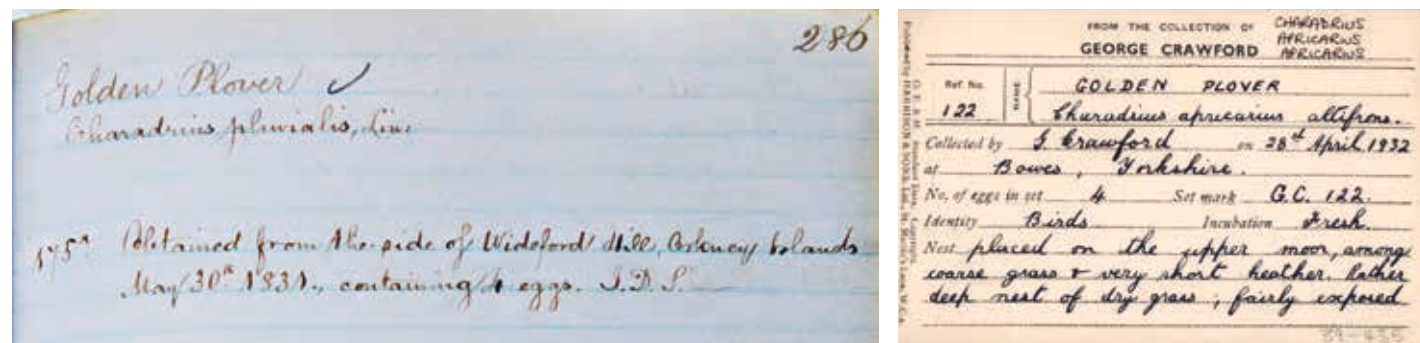 286
Golden Plover ✓
Charadrius pluvialis, Lin:
175ᵃ Obtained from the side of Wideford Hill, Orkney Islands
May 30th 1831., containing 4 eggs. J.D.S.
FROM THE COLLECTION OF
GEORGE CRAWFORD
CHARADRIUS
APRICARIUS
APRICARIUS
Ref. No.
122
NAME
GOLDEN PLOVER
Charadrius apricarius altifrons.
Collected by G Crawford on 28th April 1932
at Bowes, Yorkshire.
No. of eggs in set 4 Set mark G.C. 122.
Identity Birds Incubation Fresh.
Nest placed on the upper moor, among
coarse grass & very short heather. Rather
deep nest of dry grass, fairly exposed
39-435